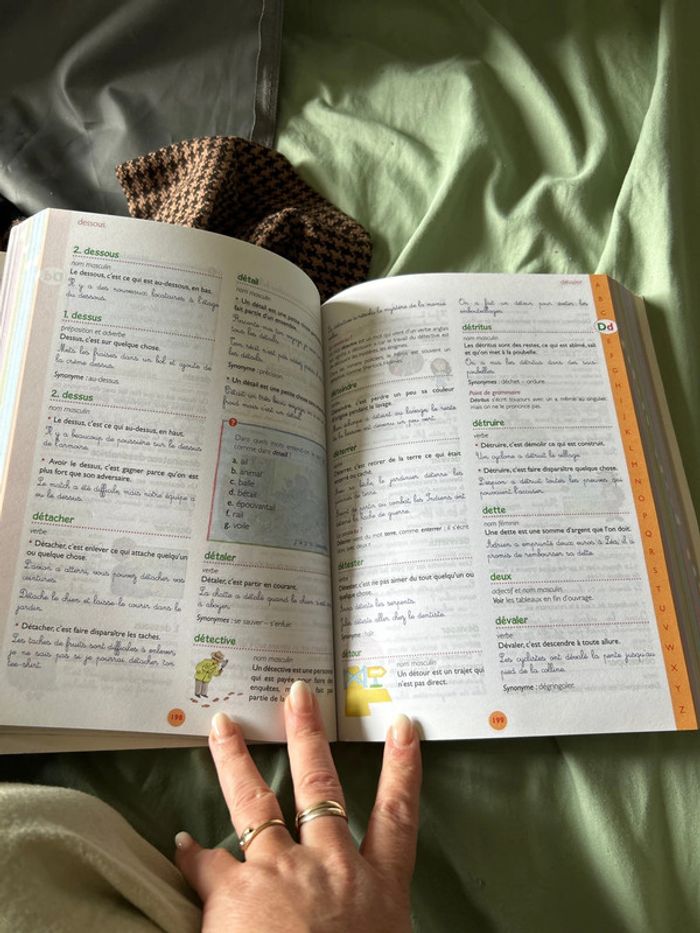 dessous
2. dessous
nom masculin
Le dessous, c'est ce qui est au-dessous, en bas.
Il y a des nouveaux locataires à l'étage
du dessous.
1. dessus
préposition et adverbe
Dessus, c'est sur quelque chose.
Mets les fraises dans un bol et ajoute de
la crème dessus.
Synonyme : au-dessus.
2. dessus
nom masculin
• Le dessus, c'est ce qui est au-dessus, en haut.
Il y a beaucoup de poussière sur le dessus
de l'armoire.
• Avoir le dessus, c'est gagner parce qu'on est
plus fort que son adversaire.
Le match a été difficile, mais notre équipe a
eu le dessus.
détacher
verbe
• Détacher, c'est enlever ce qui attache quelqu'un
ou quelque chose.
L'avion a atterri, vous pouvez détacher vos
ceintures.
Détache le chien et laisse-le courir dans le
jardin.
• Détacher, c'est faire disparaître les taches.
Les taches de fruits sont difficiles à enlever,
je ne sais pas si je pourrai détacher ton
tee-shirt.
198
détail
nom masculin
• Un détail est une petite chose
fait partie d'un ensemble.
Raconte-moi ton voyage
tous les détails.
les détails.
Synonyme : précision.
• Un détail est une petite chose sans
C'était un très beau
froid mais c'est un détail.
?
Dans quels mots entend-on
comme dans détail ?
a. ail
b. animal
c. balle
d. bétail
e. épouvantail
f. rail
g. voile
détaler
verbe
Détaler, c'est partir en courant.
La chatte a détalé quand le chien s'est mis
à aboyer.
Synonymes : se sauver – s'enfuir.
détective
nom masculin
Un détective est une personne
qui est payée pour faire des
enquêtes,
partie de la
dévaler
déteindre
Déteindre, c'est perdre un peu sa couleur
pendant le lavage.
déterrer
Déterrer, c'est retirer de la terre ce qui était
enterré ou caché.
la hache de guerre.
détester
verbe
Détester, c'est ne pas aimer du tout quelqu'un ou
quelque chose.
Sara déteste les serpents.
Jules déteste aller chez le dentiste.
Synonyme : haïr.
détour
nom masculin
Un détour est un trajet qui
n'est pas direct.
199
On a fait un détour pour éviter les
embouteillages.
détritus
nom masculin
Les détritus sont des restes, ce qui est abîmé, sali
et qu'on met à la poubelle.
On a mis les détritus dans des sacs-
poubelles.
Synonymes : déchet – ordure.
Point de grammaire
Détritus s'écrit toujours avec un s même au singulier,
mais on ne le prononce pas.
détruire
verbe
• Détruire, c'est démolir ce qui est construit.
Un cyclone a détruit le village.
• Détruire, c'est faire disparaître quelque chose.
L'espion a détruit toutes les preuves qui
pouvaient l'accuser.
dette
nom féminin
Une dette est une somme d'argent que l'on doit.
Adrien a emprunté deux euros à Léa, il a
promis de rembourser sa dette.
deux
adjectif et nom masculin
Voir les tableaux en fin d'ouvrage.
dévaler
verbe
Dévaler, c'est descendre à toute allure.
Les cyclistes ont dévalé la pente jusqu'au
pied de la colline.
Synonyme : dégringoler.
A
B
C
Dd
E
F
G
H
I
J
K
L
M
N
O
P
Q
R
S
T
U
V
W
X
Y
Z